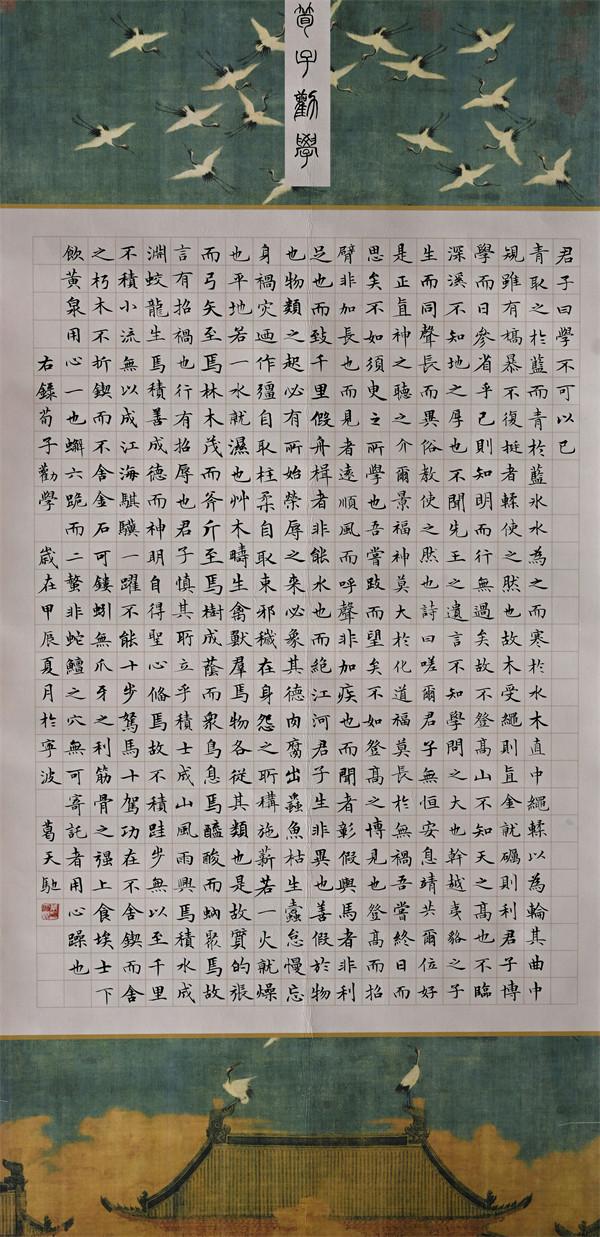 荀子勸學
君子曰學不可以已
青取之於藍而青於藍冰水為之而寒於水木直中繩輮以為輪其曲中
規雖有槁暴不復挺者輮使之然也故木受繩則直金就礪則利君子博
學而日參省乎己則知明而行無過矣故不登高山不知天之高也不臨
深溪不知地之厚也不聞先王之遺言不知學問之大也幹越夷貉之子
生而同聲長而異俗教使之然也詩曰嗟爾君子無恒安息靖共爾位好
是正直神之聽之介爾景福神莫大於化道福莫長於無禍吾嘗終日而
思矣不如須臾之所學也吾嘗跂而望矣不如登高之博見也登高而招
臂非加長也而見者遠順風而呼聲非加疾也而聞者彰假輿馬者非利
足也而致千里假舟楫者非能水也而絕江河君子生非異也善假於物
也物類之起必有所始榮辱之來必象其德肉腐出蟲魚枯生蠹怠慢忘
身禍災廼作彊自取柱柔自取束邪穢在身怨之所構施薪若一火就燥
也平地若一水就濕也艸木疇生禽獸羣焉物各從其類也是故質的張
而弓矢至焉林木茂而斧斤至焉樹成蔭而眾鳥息焉醯酸而蚋聚焉故
言有招禍也行有招辱也君子慎其所立乎積土成山風雨興焉積水成
淵蛟龍生焉積善成德而神明自得聖心脩焉故不積跬步無以至千里
不積小流無以成江海騏驥一躍不能十步駑馬十駕功在不舍鍥而舍
之朽木不折鍥而不舍金石可鏤蚓無爪牙之利筋骨之强上食埃土下
飲黃泉用心一也蟹六跪而二螯非蛇鱣之穴無可寄託者用心躁也
右錄荀子勸學 歲在甲辰夏月於寧波 葛天馳